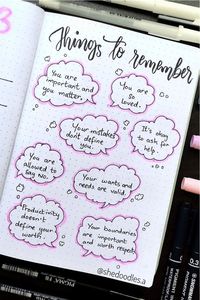 3
Things to remember
You are
important and
you matter.
You are
loved.
Your mistakes
don't define
you.
It's okay
to ask for
help.
You are
allowed to
say no.
Your wants and
needs are valid.
Productivity
doesn't
define your
worth.
Your boundaries
are important
and worth respect.
@shedoodles.a
PIGMA